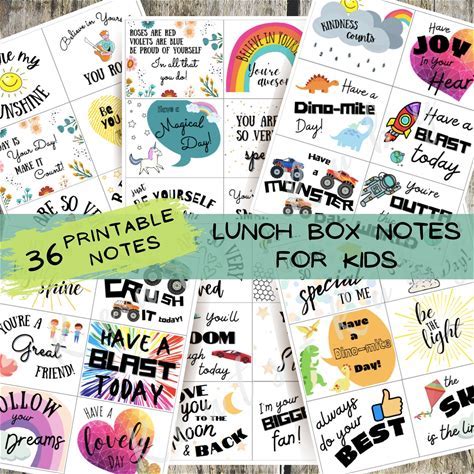 Believe in Yourself
are my
SUNSHINE
YOU RO
ROSES ARE RED
VIOLETS ARE BLUE
BE PROUD OF YOURSELF
In all that
you do!
BELIEVE IN YOURS
You're
awesome
KINDNESS
counts
Have
JOY
In Your
Heart
DAY IS
Your DAY!
MAKE IT
Count!
Be
you
Have a
Magical
Day!
YOU ARE
SO VER
spe
Have a
Dino-mite
Day!
Have a
BLAST
today
Just
BE YOURSELF
Have
a
MONSTER
YOU'RE
OUTTA
36 PRINTABLE
NOTES
LUNCH BOX NOTES
FOR KIDS
shine
CRUSH
IT today!
special
TO ME
be
the
light
YOU'RE A
Great
FRIEND!
HAVE A
BLAST
TODAY
you'll
ROOM
today!
Have a
Dino-mite
Day!
FOLLOW
your
Dreams
HAVE A
lovely
DAY
YOU
to the
MOON
& BACK
I'm your
BIGGEST
fan!
always
do your
BEST
The
SK
is the